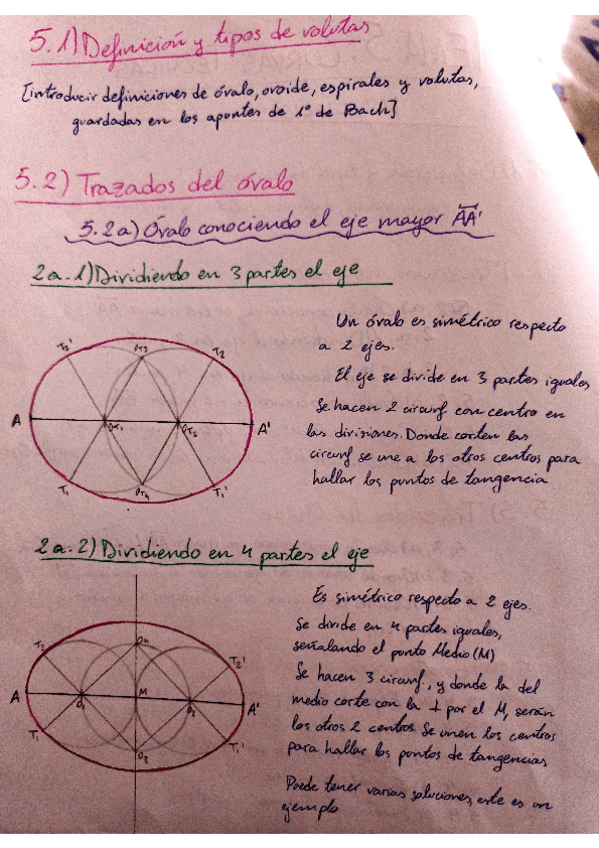 5.1) Definición y tipos de volutas
[introducir definiciones de óvalo, ovoide, espirales y volutas,
guardadas en los apuntes de 1º de Bach]
5.2) Trazados del óvalo
5.2a) Óvalo conociendo el eje mayor AA'
2a.1) Dividiendo en 3 partes el eje
Un óvalo es simétrico respecto
a 2 ejes.
El eje se divide en 3 partes iguales
Se hacen 2 circunf con centro en
las divisiones. Donde corten las
circunf se une a los otros centros para
hallar los puntos de tangencia
T2' OT3 T2
A OT1 OT2 A'
T1 OT4 T1'
2a.2) Dividiendo en 4 partes el eje
Es simétrico respecto a 2 ejes.
Se divide en 4 partes iguales,
señalando el punto Medio (M)
Se hacen 3 circunf., y donde la del
medio corte con la ⊥ por el M, serán
los otros 2 centros. Se unen los centros
para hallar los puntos de tangencias
Puede tener varias soluciones, este es un
ejemplo
T2 O4 T2'
A O1 M O2 A'
T1 O3 T1'